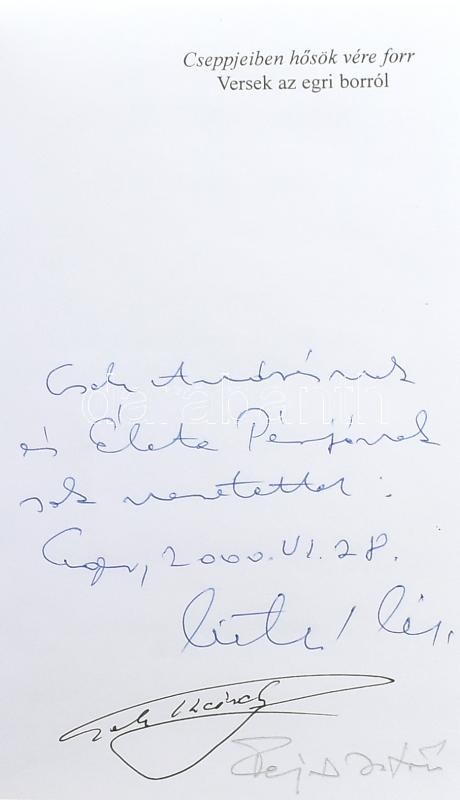 Cseppjeiben hősök vére forr
Versek az egri borról
Cseh Andrásnak
és Élete Párjának
sok szeretettel:
Eger, 2000.VI.28.